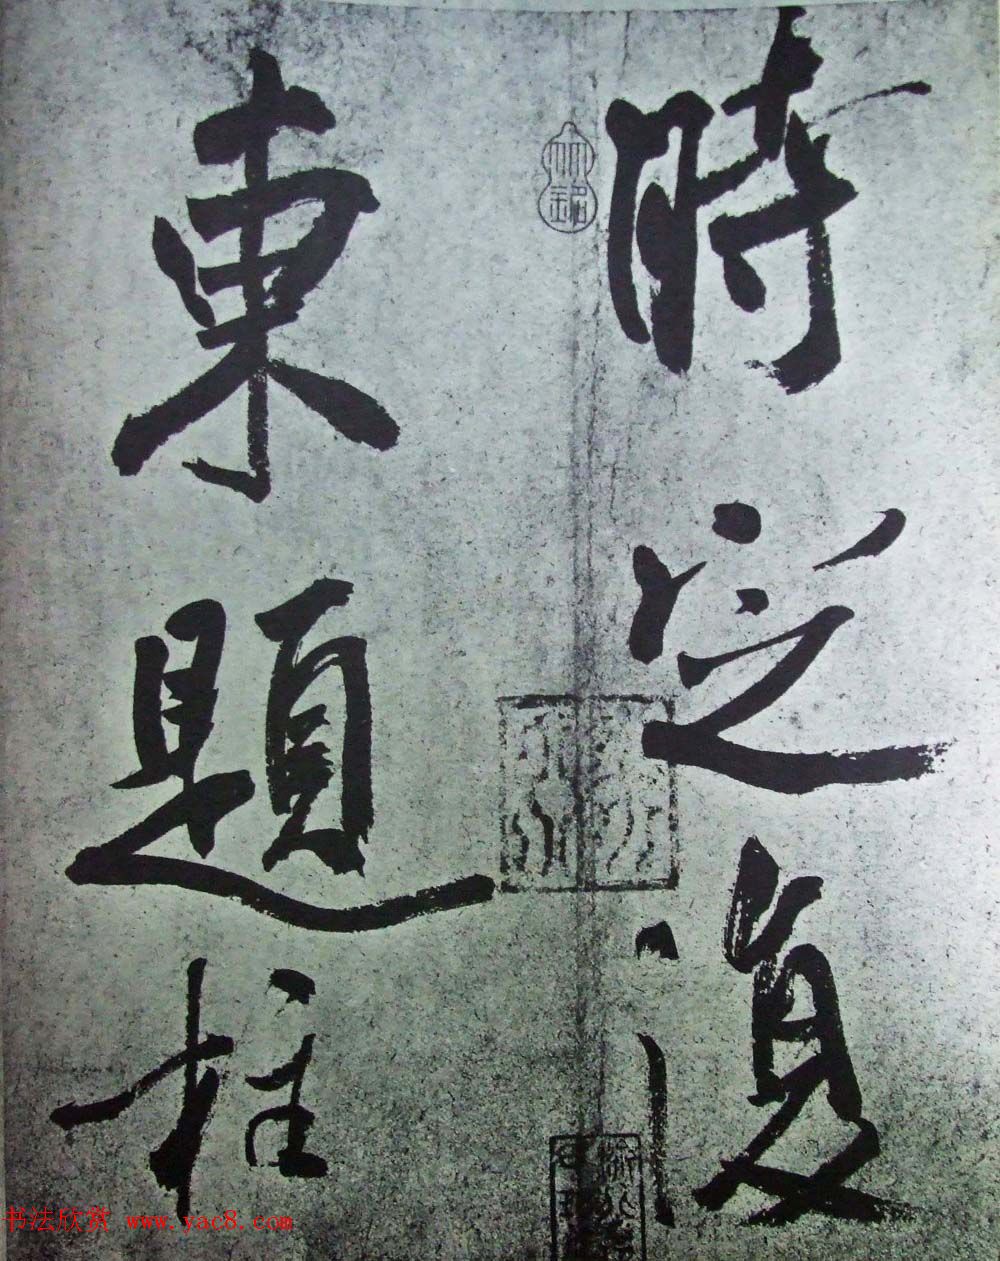 時定復
東題柱
书法欣赏 www.yac8.com